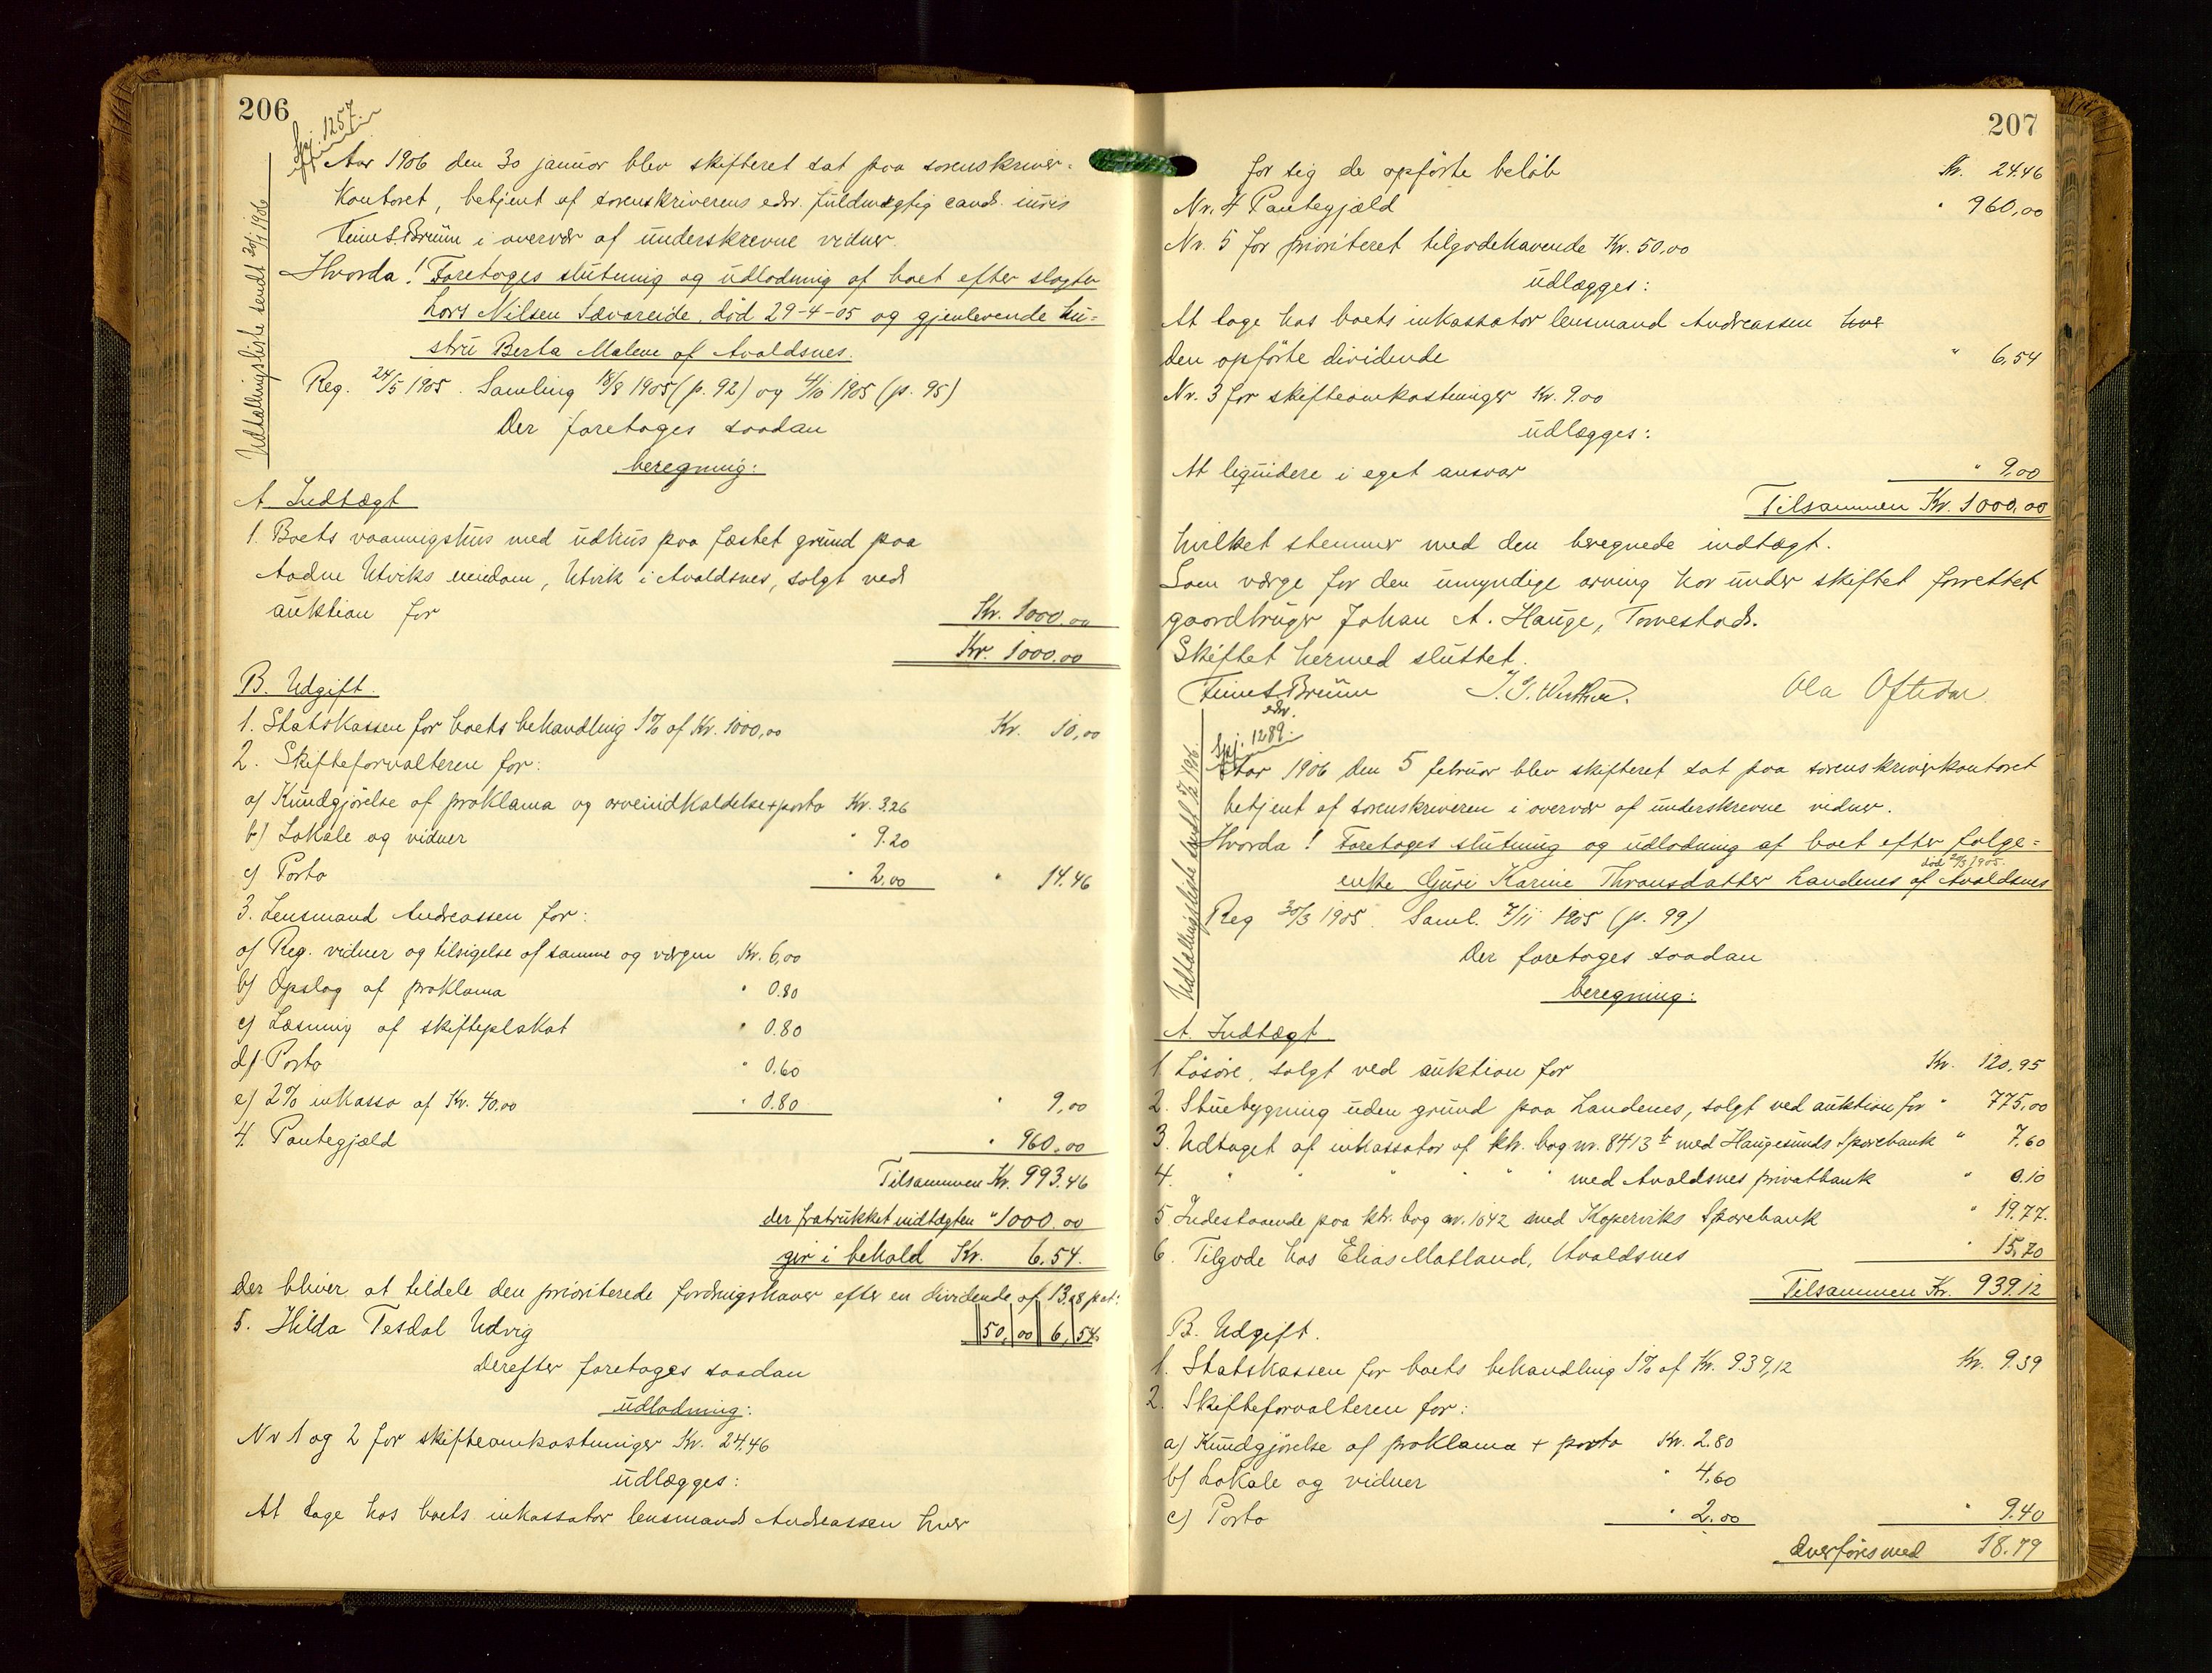 206
Spj. 1257.
Udtallingsliste sendt 30/1 1906
Aar 1906 den 30 januar blev skifteret sat paa sorenskriver-
kontoret, betjent af sorenskriverens edsv. fuldmægtig cand. iuris
Brüun i overvær af underskrevne vidner.
Hvorda! Foretoges slutning og udlodning af boet efter slagter
Lars Nilsen Sævareide, død 29-4-05 og gjenlevende hu-
stru Berta Malene af Avaldsnes.
Reg. 24/5 1905. Samling 18/8 1905 (p. 92) og 4/10 1905 (p. 95)
Der foretoges saadan
beregning:
A. Indtægt
1. Boets vaaningshus med udhus paa fæstet grund paa
Aadne Utviks eiendom, Utvik i Avaldsnes, solgt ved
auktion for Kr. 1000.00
Kr. 1000.00
B. Udgift.
1. Statskassen for boets behandling 1% af Kr. 1000,00 Kr. 10,00
2. Skifteforvalteren for:
a) Kundgjørelse af proklama og arveindkaldelse + porto Kr. 3.26
b) Lokale og vidner " 9.20
c) Porto " 2,00 " 14.46
3. Lensmand Andreassen for:
a) Reg. vidner og tilsigelse af samme og værgen Kr. 6,00
b) Opslag af proklama " 0.80
c) Læsning af skifteplakat " 0.80
d) Porto " 0.60
e) 2% inkasso af Kr. 40.00 " 0.80 " 9,00
4. Pantegjæld " 960.00
Tilsammen Kr. 993.46
der fratrukket indtægten " 1000.00
gir i behold Kr. 6.54.
der bliver at tildele den prioriterede fordringshaver efter en dividende af 13,08 pct:
5. Hilda Tesdal Udvig 50,00 6,54.
Derefter foretoges saadan
udlodning:
Nr 1 og 2 for skifteomkostninger Kr. 24.46
udlægges:
At tage hos boets inkassator lensmand Andreassen hver
207
for sig de opførte beløb Kr. 24.46
Nr. 4 Pantegjæld " 960,00
Nr. 5 for prioriteret tilgodehavende Kr. 50,00
udlægges:
At tage hos boets inkassator lensmand Andreassen hver
den opførte dividende " 6,54
Nr. 3 for skifteomkostninger Kr. 9.00
udlægges:
At liquidere i eget ansvar " 9,00
Tilsammen Kr. 1000,00
hvilket stemmer med den beregnede indtægt.
Som værge for den umyndige arving har under skiftet forrettet
gaardbruger Johan A. Hauge, Torvestad.
Skiftet hermed sluttet.
Brüun Ola Oftedal
edsv.
Spj. 1289.
Aar 1906 den 5 februar blev skifteret sat paa sorenskriverkontoret
betjent af sorenskriveren i overvær af underskrevne vidner.
Hvorda! Foretoges slutning og udlodning af boet efter følge-
død 20/3 1905.
enke Guri Karine Thronsdatter Landenes af Avaldsnes
Reg 30/3 1905. Saml. 7/11 1905 (p. 99)
Der foretoges saadan
beregning:
A. Indtægt
1. Løsøre, solgt ved auktion for Kr. 120,95
2. Stuebygning uden grund paa Landenes, solgt ved auktion for " 775,00
3. Udtaget af inkassator af ktr. bog nr. 8413 b med Haugesunds Sparebank " 7.60
4. " " " " " med Avaldsnes privatbank " 0.10
5. Indestaaende paa ktr. bog nr. 1042 med Kopervik Sparebank " 19.77.
6. Tilgode hos Elias Matland, Avaldsnes " 15,70
Tilsammen Kr. 939,12
B. Udgift.
1. Statskassen for boets behandling 1% af Kr. 939,12 Kr. 9.39
2. Skifteforvalteren for:
a) Kundgjørelse af proklama + porto Kr. 2.80
b) Lokale og vidner " 4,60
c) Porto " 2.00 " 9.40
Overføres med 18.79